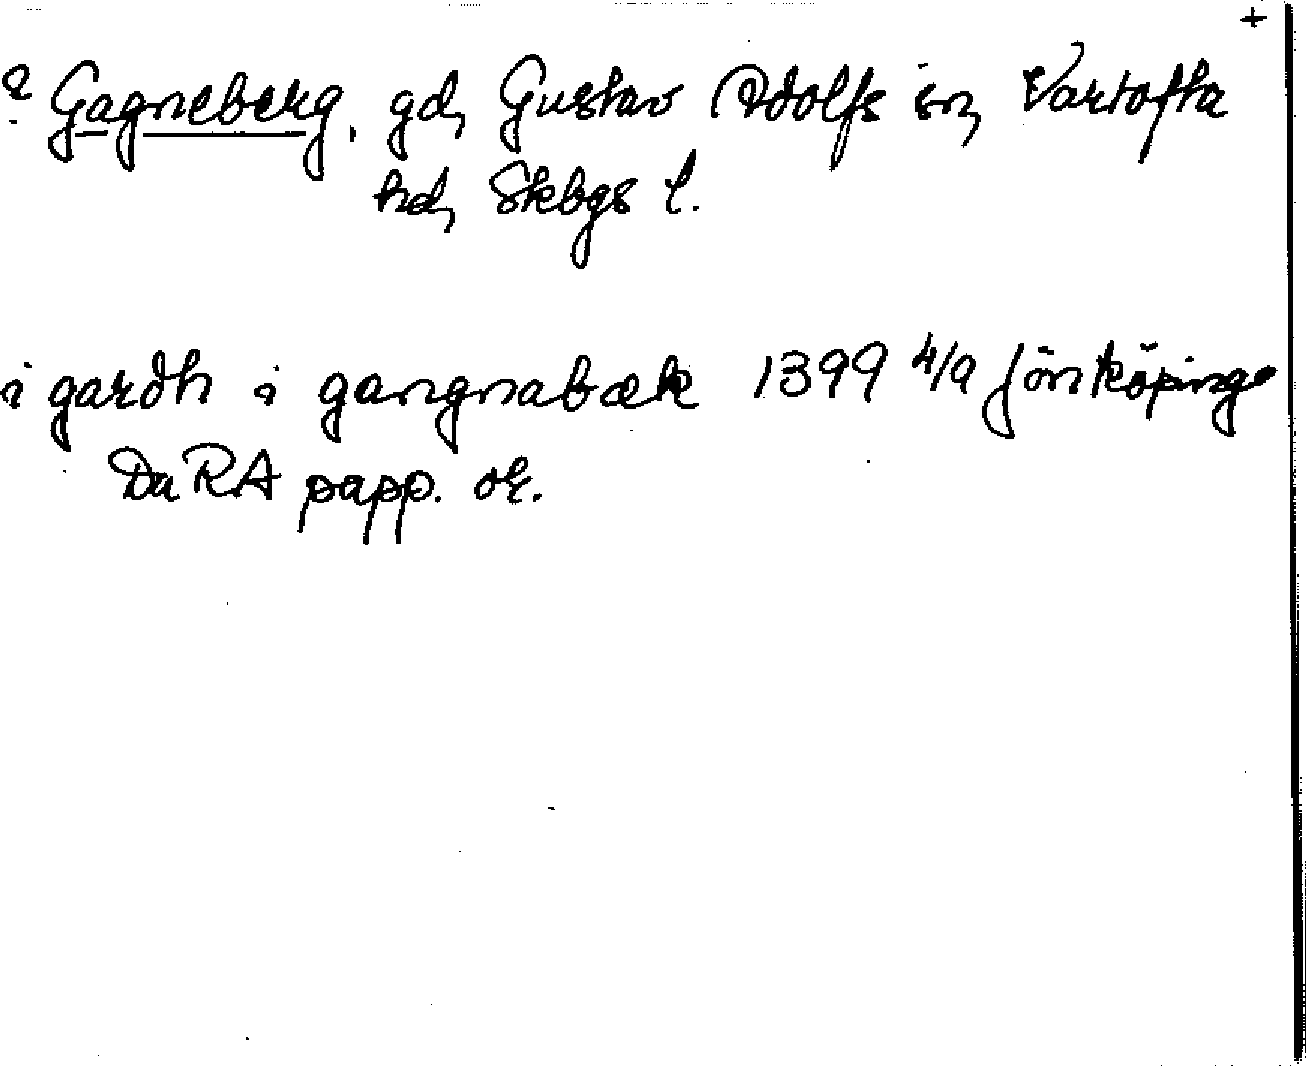 +
? Gagneberg, gd, Gustav Adolfs sn, Vartofta
hd, Skbgs l.
i gardh i gangnabæk 1399 4/9 Jönköping
DaRA papp. or.